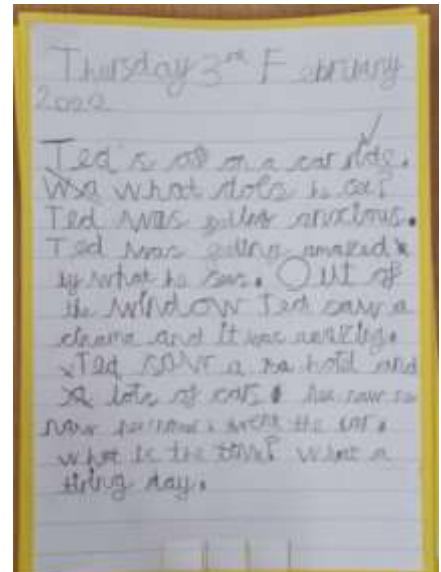 Thursday 3rd February
2022
Ted's of on a car ride.
what dols he see?
Ted was anxious.
Ted was amazed
by what he saw. Out of
the window Ted saw a
and it was amazing.
Ted saw a and
lots of cars. he saw
the car.
what is the time? What a
tiring day.